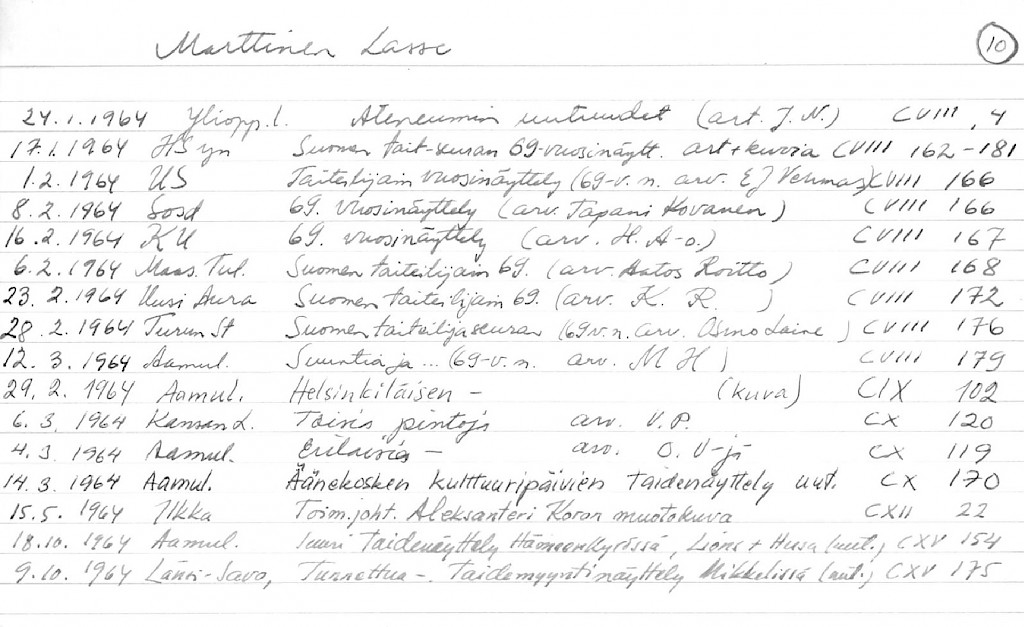 Marttinen Lasse 10
24.1.1964 Yliopp.l. Ateneumin uutuudet (art. J.N.) CVIII, 4
17.1.1964 HS yn Suomen tait-seuran 69-vuosinäytt. art+kuvia CVIII 162-181
1.2.1964 US Taiteilijain vuosinäyttely (69-v.n. arv. EJ Vehmas) CVIII 166
8.2.1964 Sosd 69. vuosinäyttely (arv. Tapani Kovanen) CVIII 166
16.2.1964 KU 69. vuosinäyttely (arv. H.A-o.) CVIII 167
6.2.1964 Maas. Tul. Suomen taiteilijain 69. (arv. Aatos Roitto) CVIII 168
23.2.1964 Uusi Aura Suomen taiteilijain 69. (arv. K. R. ) CVIII 172
28.2.1964 Turun St Suomen taiteilijaseuran (69v.n. arv. Osmo Laine ) CVIII 176
12.3.1964 Aamul. Suuntia ja ... (69-v.n. arv. M H) CVIII 179
29.2.1964 Aamul. Helsinkiläisen - (kuva) CIX 102
6.3.1964 Kansan L. pintoja arv. V.P. CX 120
4.3.1964 Aamul. Erilaisia - arv. O.V-jä CX 119
14.3.1964 Aamul. Äänekosken kulttuuripäivien taidenäyttely uut. CX 170
15.5.1964 Ilkka Toim.joht. Aleksanteri Koron muotokuva CXII 22
18.10.1964 Aamul. Suuri taidenäyttely Hämeenkyrössä, Lions + Husa (uut.) CXV 154
9.10.1964 Länsi-Savo, Tunnettua -. Taidemyyntinäyttely Mikkelissä (uut.) CXV 175